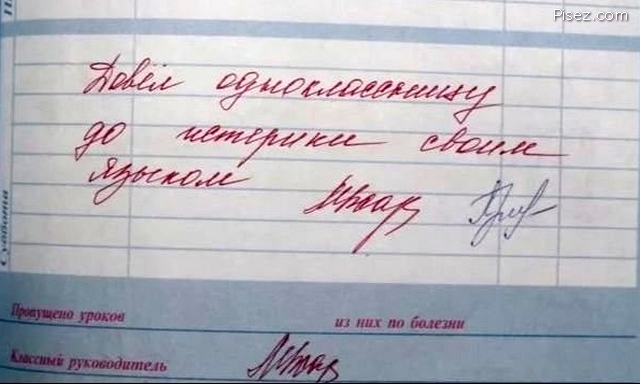 Pisez.com
Довёл одноклассницу
до истерики своим
языком
Суббота
Пропущено уроков из них по болезни
Классный руководитель